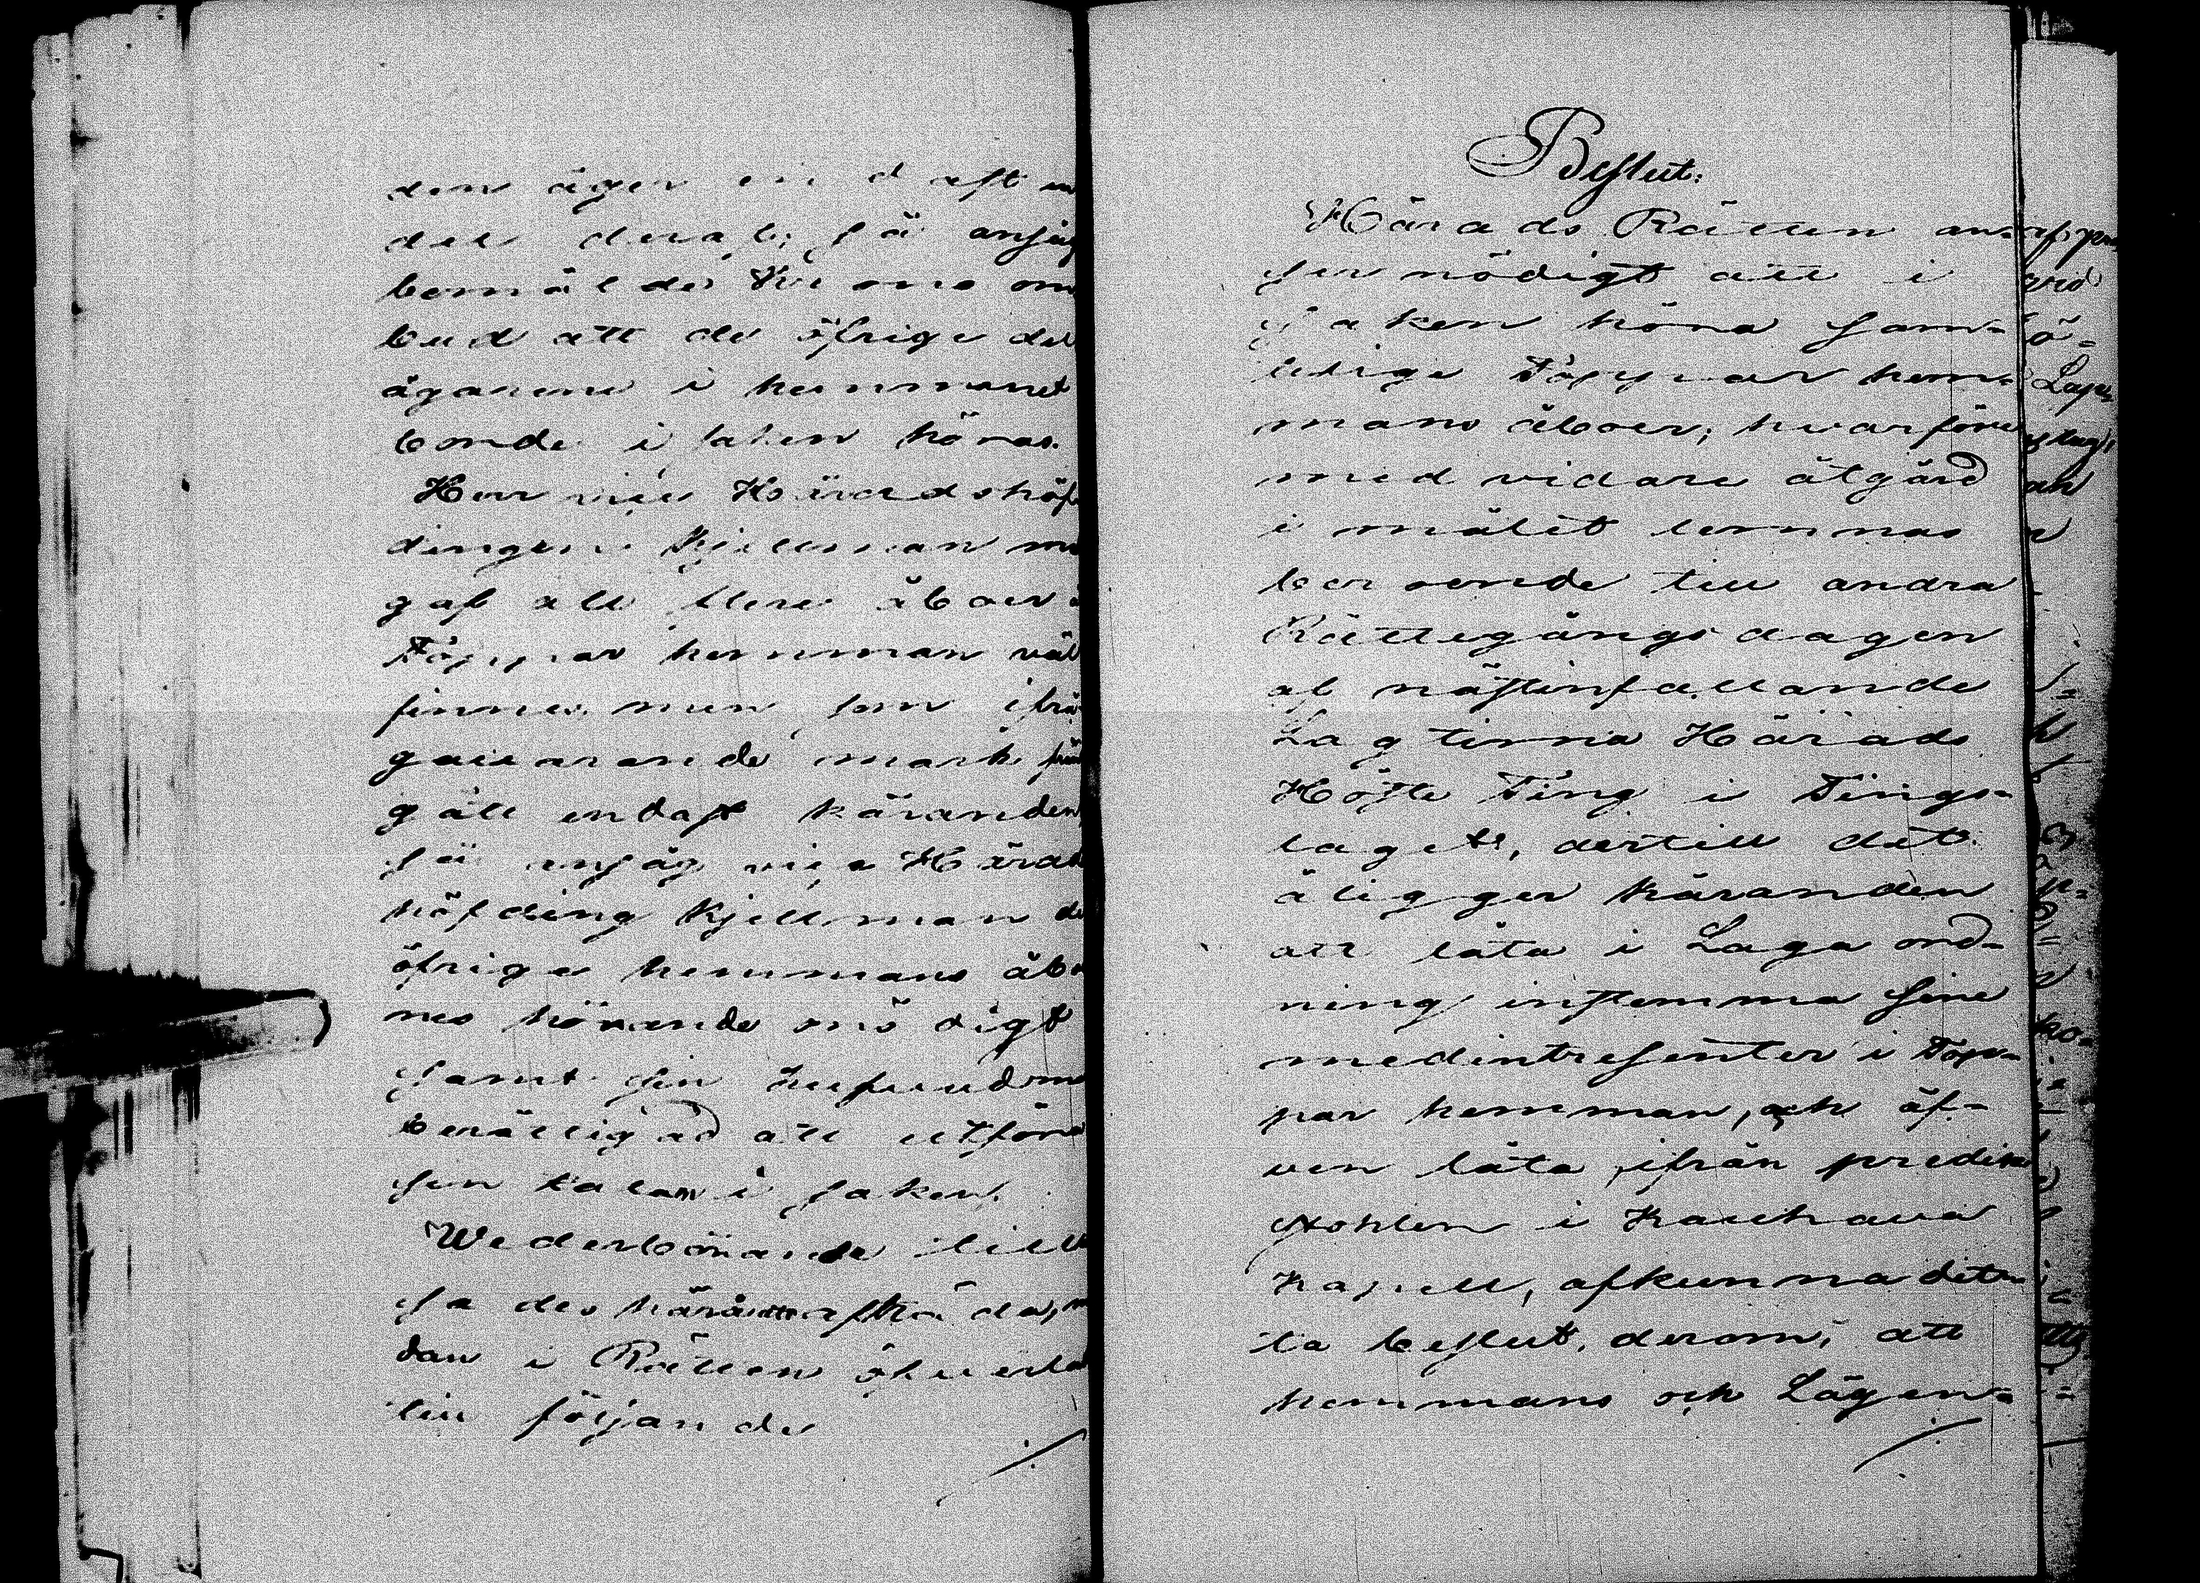 den äger endast en
del deraf; så ansåg
bemälde Kärandeom
bud att de öfrige del
ägarene i hemmanet
borde i saken höras.
Herr vice Häradshöf
dingen Kjellman med
gaf att flere åboer å
Töppar hemman väl
finnes men som ifrå
gavarande mark från
gått endast käranden,
så ansåg vice Härads
höfding Kjellman de
öfrige hemmans åbo
nes hörande onödigt
samt sin hufvudman
berättigad att utföra
sin talan i saken.
Wederbörande tillsa
sa des häromafträda,
dan i Rätten öfverla
till följande
Beslut:
Härads Rätten an-
ser nödigt att i
saken höra sam-
telige Töppar hem-
mans åboer; hvarföre
med vidare åtgärd
i målet lemnas
beroende till andra
Rättegångsdagen
af nästinfallande
Lagtima Härads
Höste Ting i Tings-
laget, dertill det
åligger käranden
att låta i Laga ord-
ning instemma sine
medintressenter i Töp-
par hemman, och äf-
ven låta, ifrån predik
stohlen i Kauhava
Kapell, afkunna det-
ta beslut, derom, att
hemmans och Lägen-